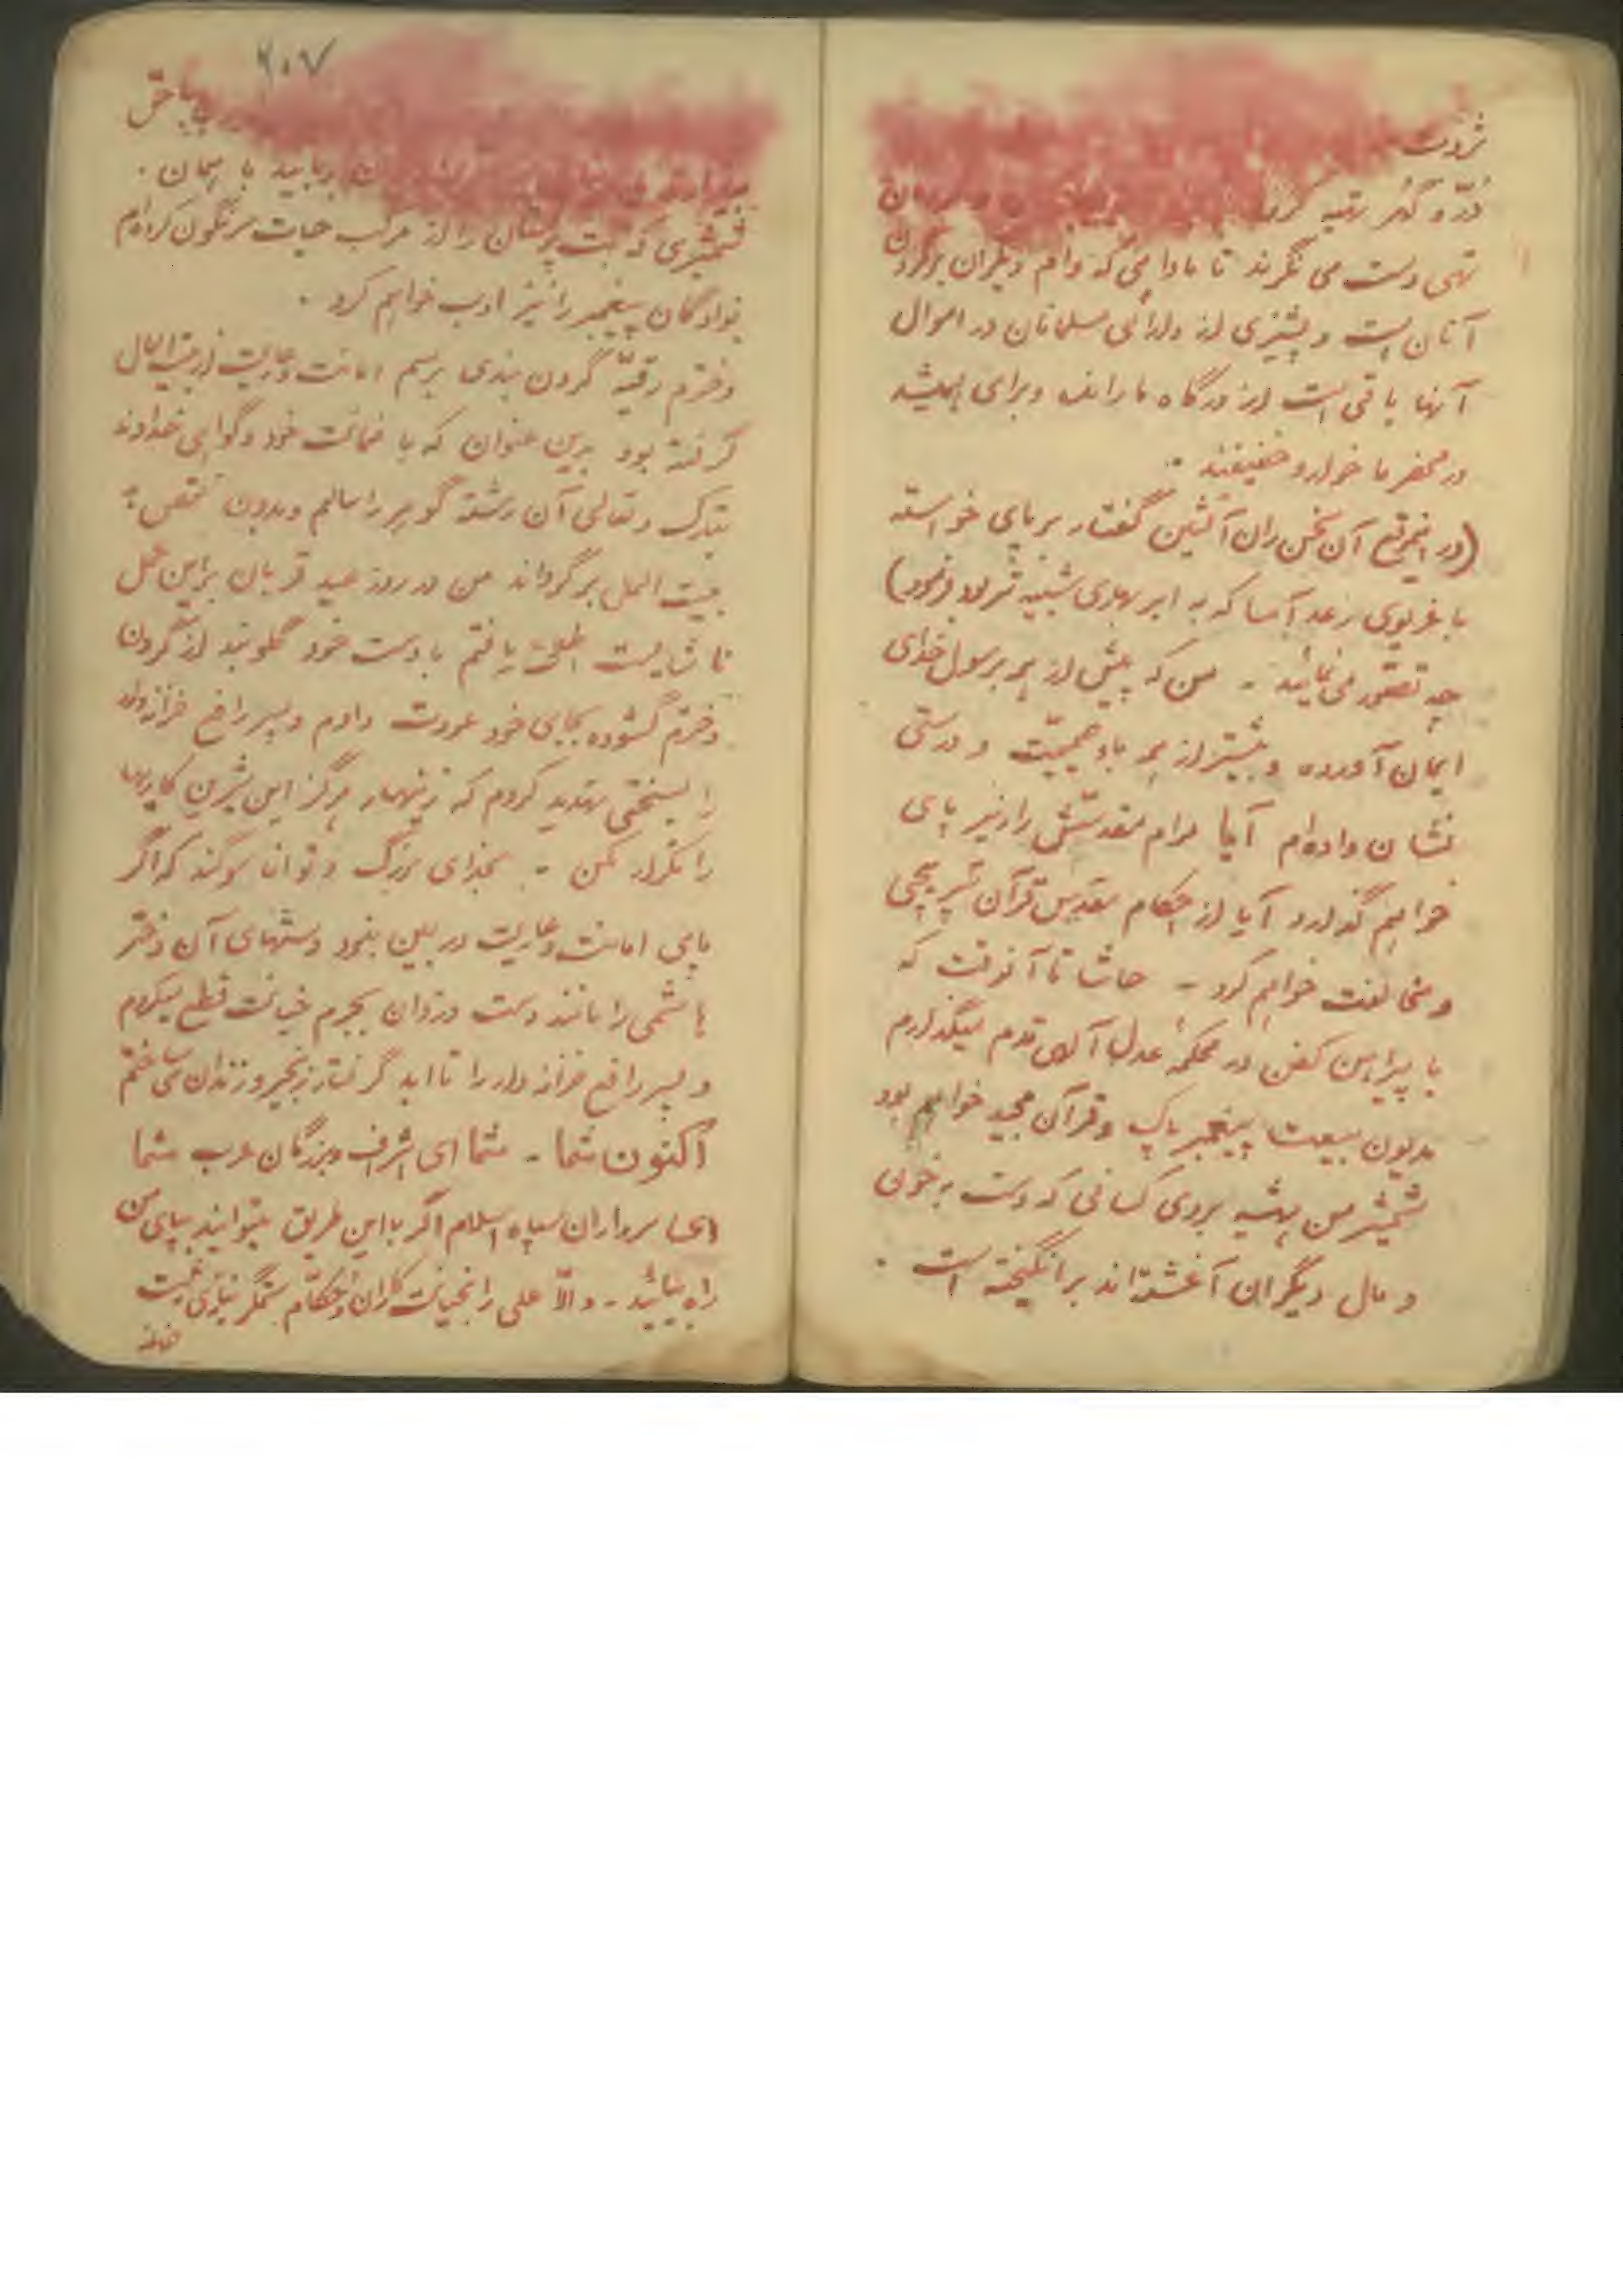 ثروت
دُرّ و گهر تهیه کرده
تهی دست می نگرند تا مادامی که وام دیگران برگردن
آنان است و پشیزی از دارائی مسلمانان در اموال
آنها باقی است از درگاه ما رانده و برای همیشه
در محضر ما خوار و خفیفند .
(در اینموقع آن سخن ران آتشین گفتار برپای خواسته
با غریوی رعد آسا که به ابر بهاری شبیه تر بود فرمود)
چه تصور می نمائید - من که پیش از همه برسول خدای
ایمان آورده و بیشتر از همه باو صمیمیّت و درستی
نشان داده‌ام آیا مرام مقدّسش را زیر پای
خواهم گذارد آیا از احکام مقدس قرآن سرپیچی
و مخالفت خواهم کرد - حاشا تا آنوقت که
با پیراهن کفن در محکمهٔ عدل قدم میگذارم
مدیون بیعت پیغمبر پاک و قرآن مجید خواهم بود
شمشیر من همیشه بروی کسانی که دست به خون
و مال دیگران آغشته‌اند برانگیخته است .
۲۰۷
حق
ربایید با همان .
شمشیری که بت پرستان را از مرکب حیات سرنگون کرده‌ام
نوادگان پیغمبر را نیز ادب خواهم کرد .
دخترم رقیّه گردن بندی برسم امانت و عاریت از بیت المال
گرفته بود بدین عنوان که با ضمانت خود و گواهی خداوند
تبارک و تعالی آن رشتهٔ گوهر را سالم و بدون نقص به
بیت المال برگرداند من در روز عید قربان براین عمل
ناشایست اطلاع یافتم با دست خود گلوبند از گردن
دخترم گشوده بجای خود عودت دادم و پسر رافع خزانه‌دار
را بسختی تهدید کردم که زینهار هرگز این شیرین کاریها
را تکرار مکن - بخدای بزرگ و توانا سوگند که اگر
پای امانت و عاریت در بین نبود دستهای آن دختر
هاشمی را مانند دست دزدان بجرم خیانت قطع میکردم
و پسر رافع خزانه دار را تا ابد گرفتار زنجیر و زندان می ساختم
اکنون شما - شما ای اشراف و بزرگان عرب شما
ای سرداران سپاه اسلام اگر با این طریق میتوانید بپای من
راه بپیمائید - والاّ علی را بخیانت کاران و حکّام ستمگر نیازی نیست